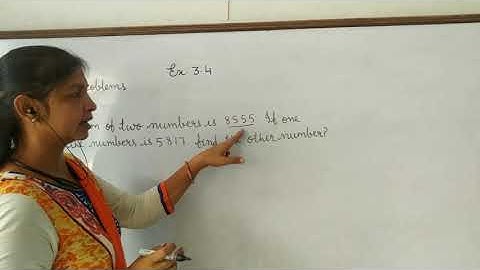 Ex 3.4
oblems
m of two numbers is 8555 If one
numbers is 5317 find other number?